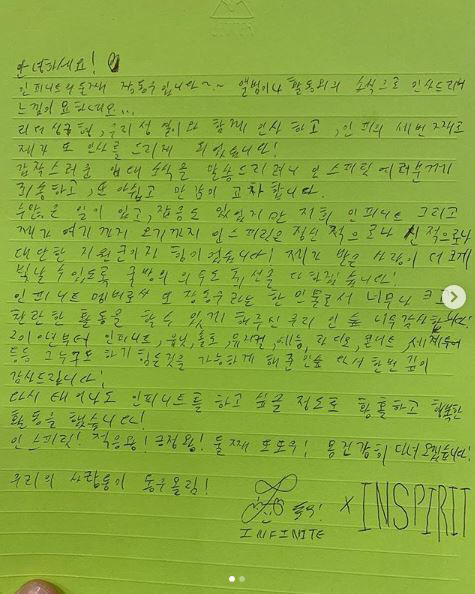 안녕하세요!
인피니트의 둘째 장동우입니다~~ 앨범이나 활동외의 소식으로 인사드리니
느낌이 묘하네요...
리더 성규형, 우리 성열이와 함께 인사 하고, 인피의 세번째로
제가 또 인사를 드리게 되었습니다!
갑작스러운 입대 소식을 말씀드리려니 인스피릿 여러분께
죄송하고, 또 아쉽고 만감이 교차합니다.
수많은 일이 있고, 잡음도 있었지만 저희 인피니트 그리고
제가 여기까지 오기까지 인스피릿은 정신적으로나 신적으로나
대단한 지원군이자 힘이었습니다! 제가 받은 사랑이 더 크게
빛날 수 있도록 국방의 의무도 최선을 다하겠습니다!
인피니트 멤버로써 또 장동우라는 한 인물로서 너무나
찬란한 활동을 할수 있게 해주신 우리 인슾 너무 감사합니다!
2010년부터 인피니트, 유닛, 솔로, 뮤지컬, 예능, 라디오, 콘서트, 세계투어
등등 그누구도 하기 힘든것을 가능하게 해준 인슾 다시한번 깊이
감사드립니다!
다시 태어나도 인피니트를 하고 싶을 정도로 황홀하고 행복한
활동을 했습니다!
인스피릿! 적응왕! 긍정왕! 둘째 또또우! 몸건강히 다녀오겠습니다!
우리의 사랑둥이 동우올림!
INFINITE X INSPIRIT